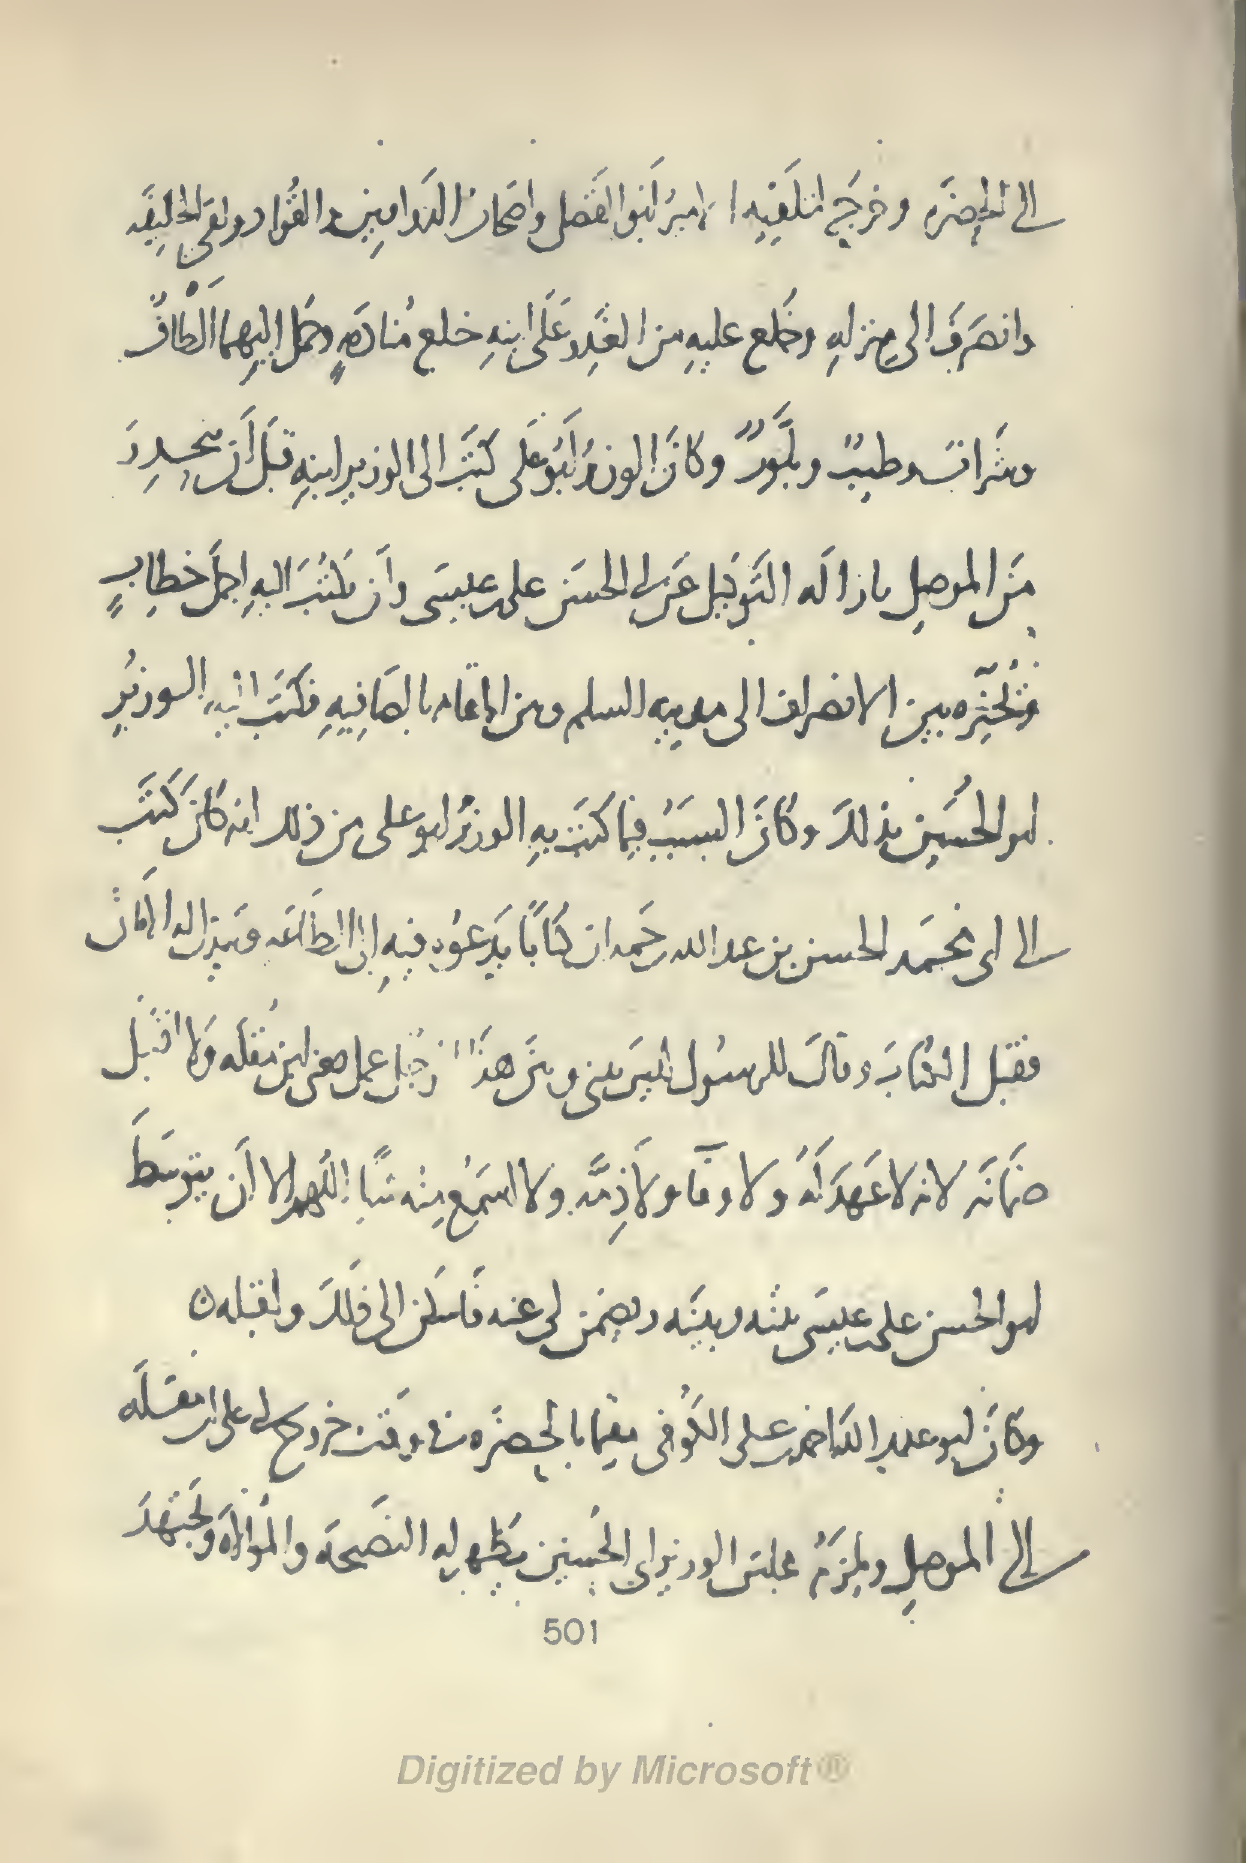 الى الحضرة وخرج لتلقيه الامير ابو الفضل واصحاب الدواوين والقواد ولقى الخليفه
وانصرف الى منزله وخلع عليه من الغد وعلى ابنه خلع منادمه وحمل اليهما الطاف
وشراب وطيب وبلور وكان الوزير ابو على كتب الى الوزير ابنه قبل أن ينحدر
من الموصل بازاله التوكيل عن ابى الحسن على بن عيسى وأن يكتب اليه اجمل خطاب
ويخيره بين الانصراف الى مدينه السلم وبين المقام بالصافيه فكتب اليه الوزير
ابو الحسين بذلك وكان السبب فيما كتب به الوزير ابو على من ذلك انه كان كتب
الى ابى محمد الحسن بن عبد الله بن حمدان كتابا يدعوه فيه الى الطاعه ويبذل له الامان
فقبل الكتاب وقال للرسول ليس بينى وبين هذا الرجل عمل يعنى ابن مقله ولا اقبل
ضمانه لانه لا عهد له ولا وفا ولا ذمه ولا اسمع منه شيا اللهم الا أن يتوسط
ابو الحسن على بن عيسى بينه وبينه ويضمن لى عنه فاسكن الى ذلك واقبله ن
وكان ابو عبد الله احمد بن على الكوفى مقيما بالحضرة فى وقت خروج ابى على ابن مقله
الى الموصل ويلزم مجلس الوزير ابى الحسين يظهر له النصيحه والموالاه ويجتهد
501
Digitized by Microsoft®